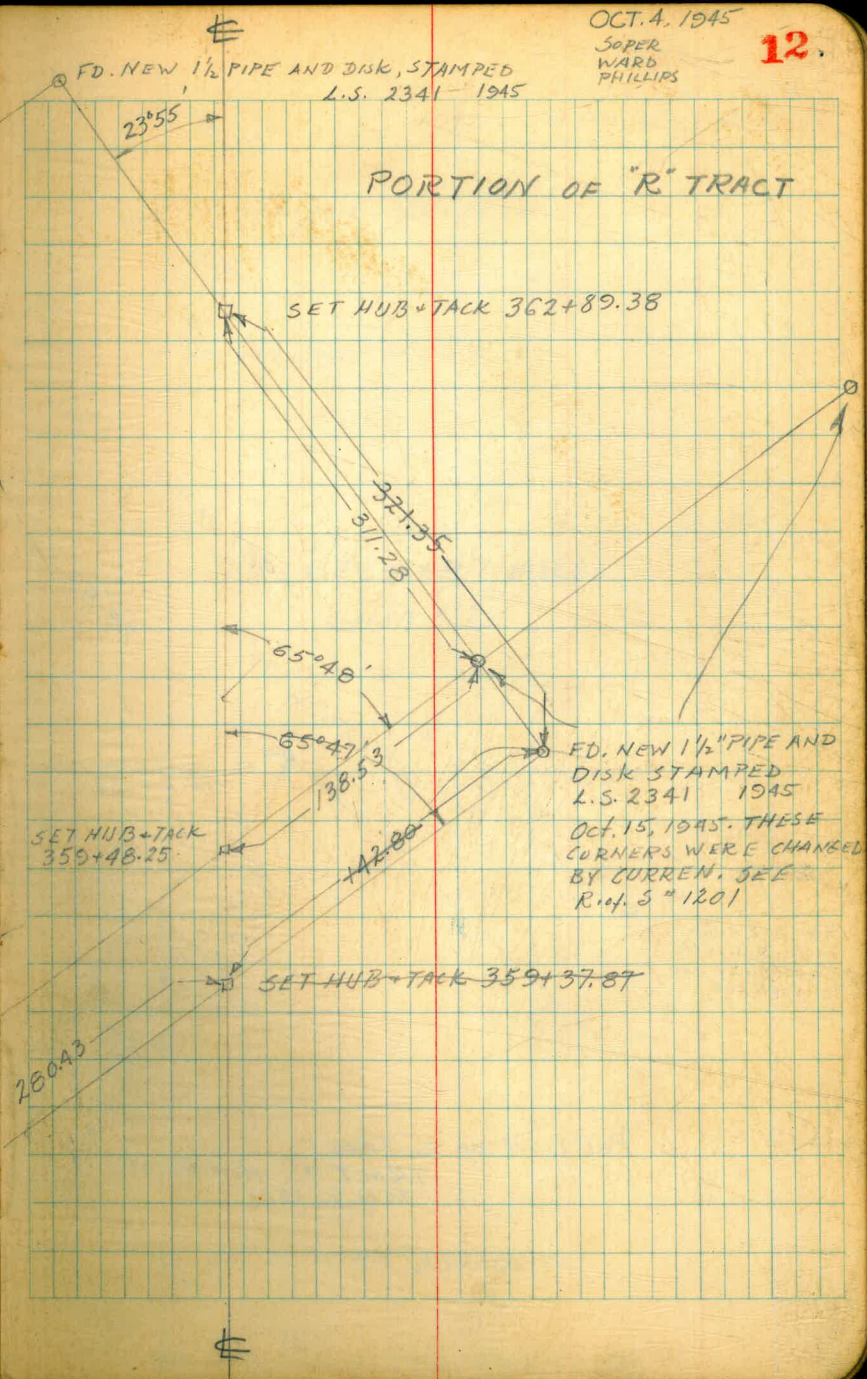 OCT. 4, 1945
SOPER
WARD
PHILLIPS
12.
FD. NEW 1½ PIPE AND DISK, STAMPED
L.S. 2341 1945
23°55'
PORTION OF "R" TRACT
SET HUB & TACK 362+89.38
321.35
311.28
65°48'
65°47'
138.53
142.80
FD. NEW 1½" PIPE AND
DISK STAMPED
L.S. 2341 1945
Oct. 15, 1945. THESE
CORNERS WERE CHANGED
BY CURREN. SEE
R. of. S # 1201
SET HUB & TACK
359+48.25
SET HUB & TACK 359+37.87
280.43